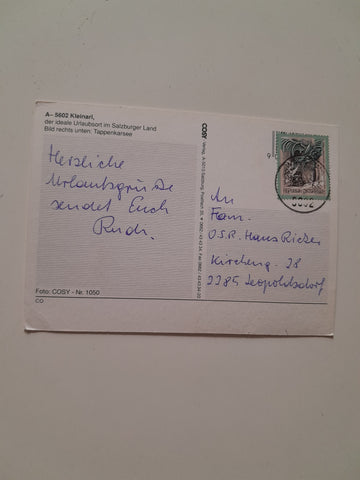 A- 5602 Kleinarl,
der ideale Urlaubsort im Salzburger Land
Bild rechts unten: Tappenkarsee
Herzliche
Urlaubsgrüße
sendet Euch
Rudi.
Foto: COSY - Nr. 1050
CO
COSY Verlag, A 5013 Salzburg, Postfach
An
Fam.
O.S.R. Hans Rieder
Kircheng. 28
2285 Leopoldsdorf